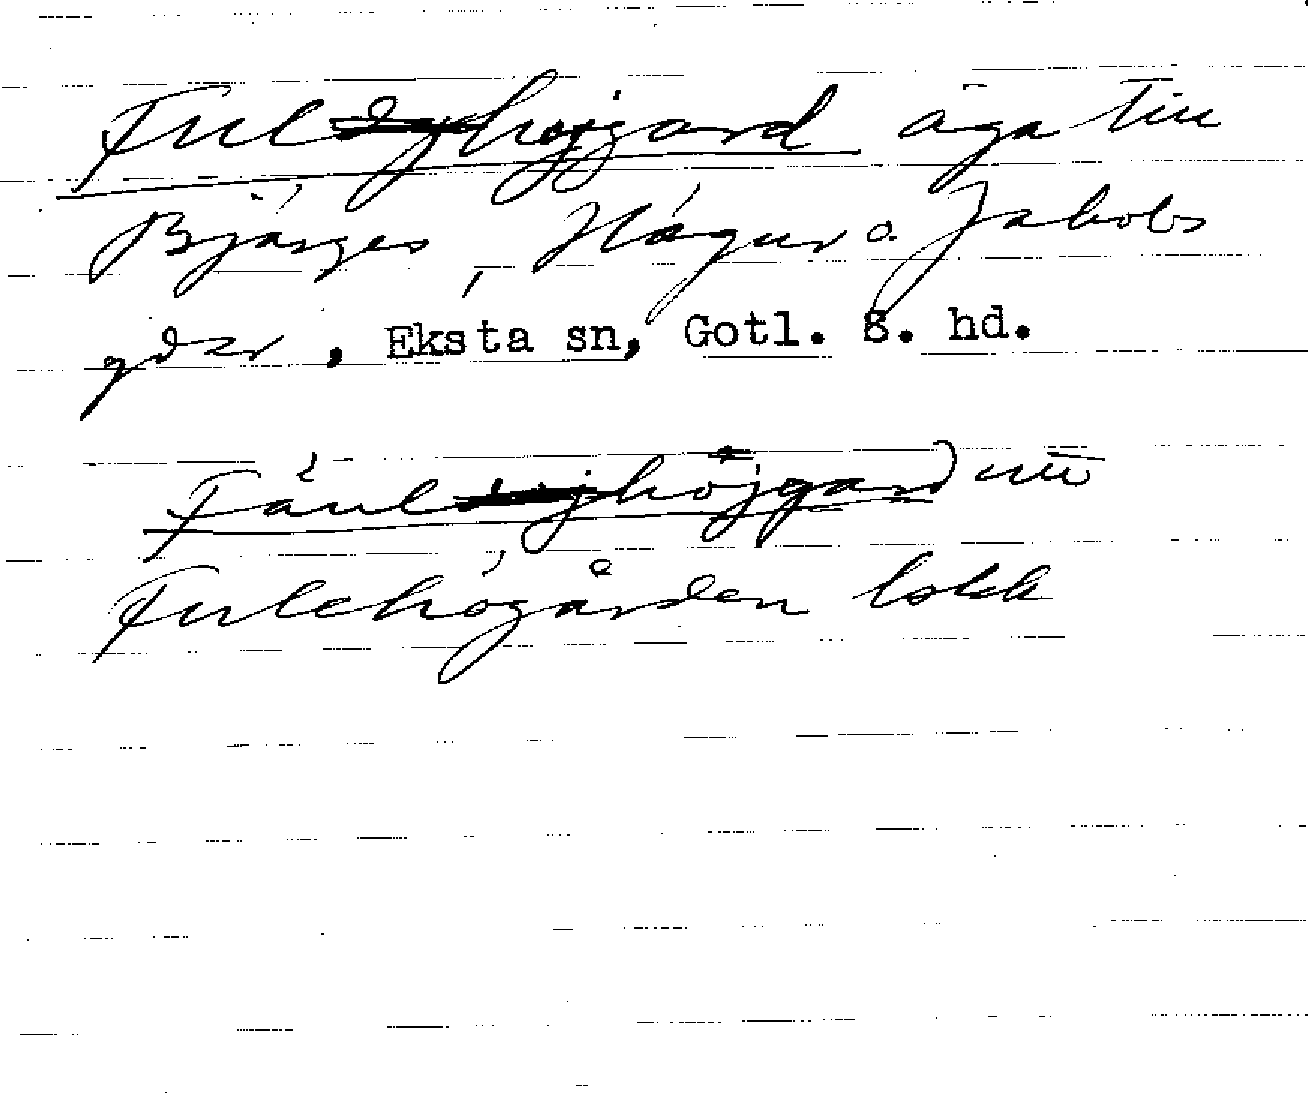 Fulejhöjgard äga till
Bjärges, Hägur o. Jakobs
gdar, Eksta sn, Gotl. S. hd.
Fäul höjgard
Fulehögården lokk